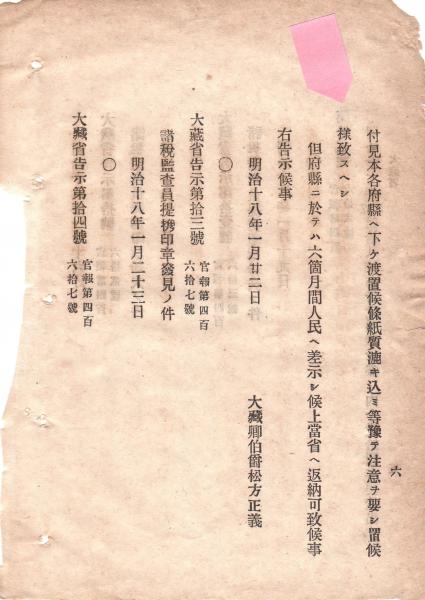 付見本各府縣ヘ下ケ渡置候條紙質漉キ込ミ等豫テ注意ヲ要シ置候
様致スヘシ
但府縣ニ於テハ六箇月間人民ヘ差示シ候上當省ヘ返納可致候事
右告示候事
明治十八年一月廿二日
大藏卿伯爵松方正義
〇
大藏省告示第拾三號
官報第四百
六拾七號
諸税監査員提携印章發見ノ件
明治十八年一月二十三日
〇
大藏省告示第拾四號
官報第四百
六拾七號
六